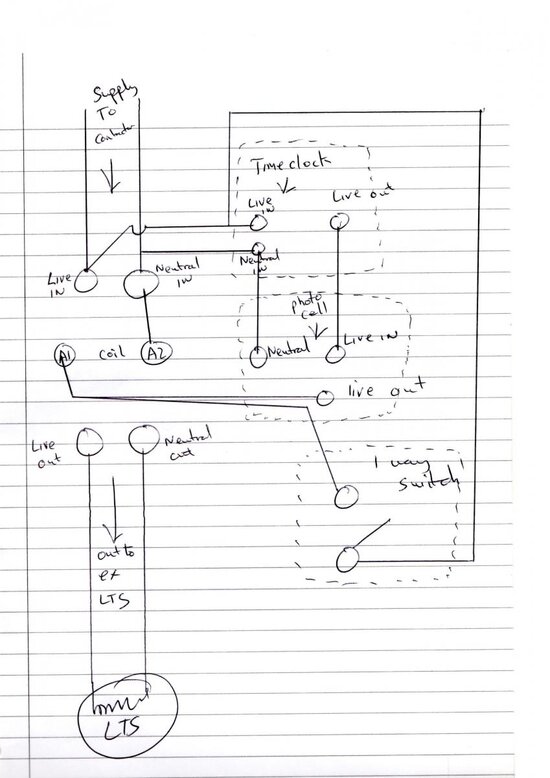 Supply
TO
Contactor
Time clock
Live
IN
Live out
Neutral
IN
Live
IN
Neutral
IN
photo
cell
Neutral
Live IN
A1
coil
A2
live out
Live
out
Neutral
out
1 way
Switch
out to
ex
LTS
LTS